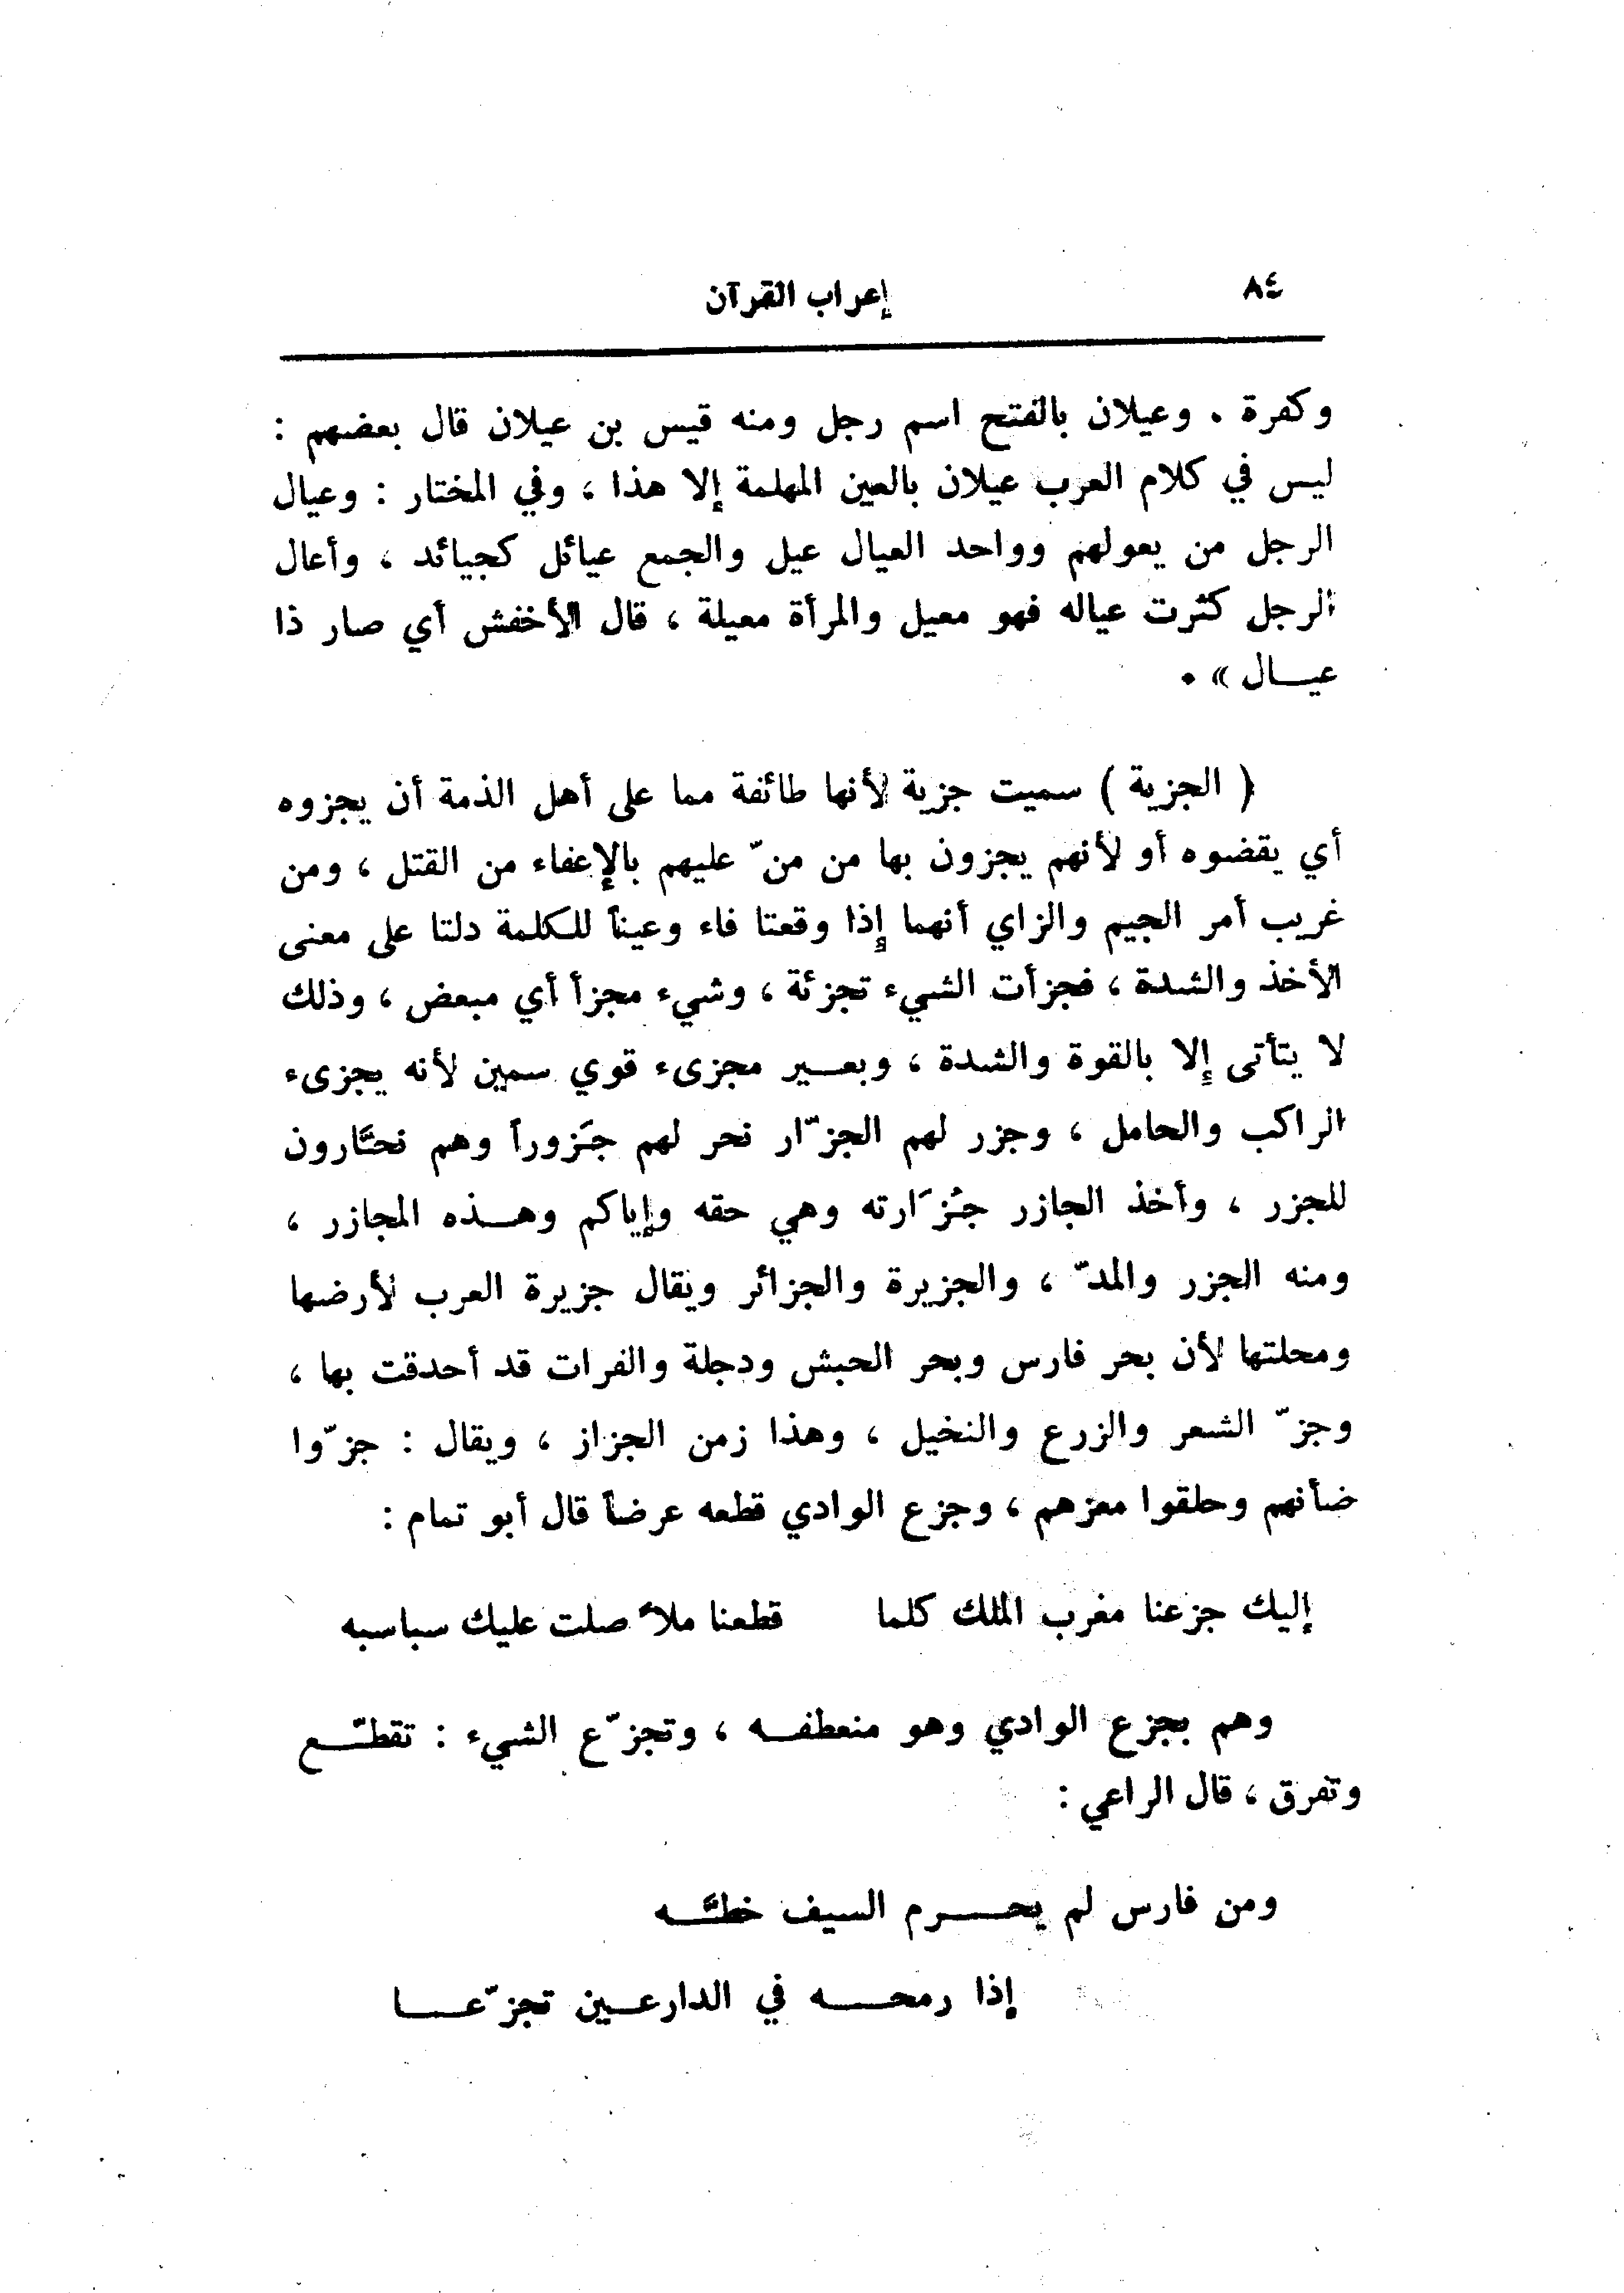 ٨٤
إعراب القرآن
وكفرة . وعيلان بالفتح اسم رجل ومنه قيس بن عيلان قال بعضهم :
ليس في كلام العرب عيلان بالعين المهلمة إلا هذا ، وفي المختار : وعيال
الرجل من يعولهم وواحد العيال عيل والجمع عيائل كجيائد ، وأعال
الرجل كثرت عياله فهو معيل والمرأة معيلة ، قال الأخفش أي صار ذا
عيـال » .
( الجزية ) سميت جزية لأنها طائفة مما على أهل الذمة أن يجزوه
أي يقضوه أو لأنهم يجزون بها من منّ عليهم بالإعفاء من القتل ، ومن
غريب أمر الجيم والزاي أنهما إذا وقعتا فاء وعيناً للكلمة دلتا على معنى
الأخذ والشدة ، فجزأت الشيء تجزئة ، وشيء مجزأ أي مبعض ، وذلك
لا يتأتى إلا بالقوة والشدة ، وبعـير مجزىء قوي سمين لأنه يجزىء
الراكب والحامل ، وجزر لهم الجزّار نحر لهم جَزوراً وهم نحَّارون
للجزر ، وأخذ الجازر جُزَارته وهي حقه وإياكم وهـذه المجازر ،
ومنه الجزر والمدّ ، والجزيرة والجزائر ويقال جزيرة العرب لأرضها
ومحلتها لأن بحر فارس وبحر الحبش ودجلة والفرات قد أحدقت بها ،
وجزّ الشعر والزرع والنخيل ، وهذا زمن الجزاز ، ويقال : جزّوا
ضأنهم وحلقوا معزهم ، وجزع الوادي قطعه عرضاً قال أبو تمام :
إليك جزعنا مغرب الملك كلما قطعنا ملاً صلت عليك سباسبه
وهم بجزع الوادي وهو منعطفـه ، وتجزّع الشيء : تقطّـع
وتفرق ، قال الراعي :
ومن فارس لم يحـرم السيف خطَّـه
إذا رمحـه في الدارعـين تجزّعـا